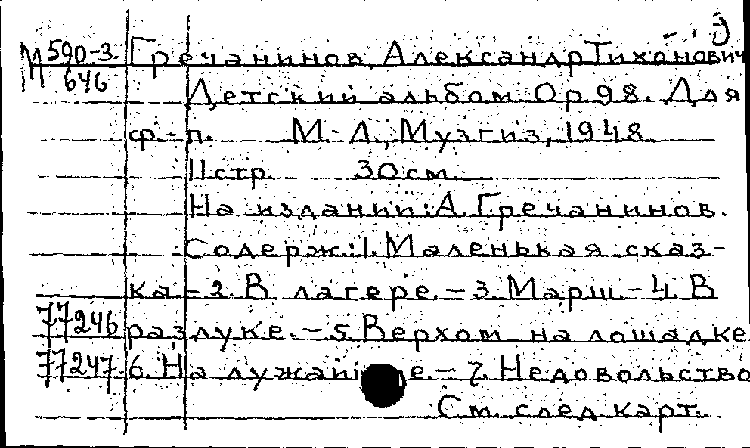 М 590-3 Гречанинов, Александр Тихонович
646
Детский альбом. Ор. 98. Для
ф.-п. М.-Л., Музгиз, 1948.
11 стр. 30 см.
На издании: А. Гречанинов.
Содерж.: 1. Маленькая сказ-
ка - 2. В лагере. - 3. Марш. - 4. В
77246 разлуке. - 5. Верхом на лошадке
77247 6. На - 7. Недовольство
См. след. карт.